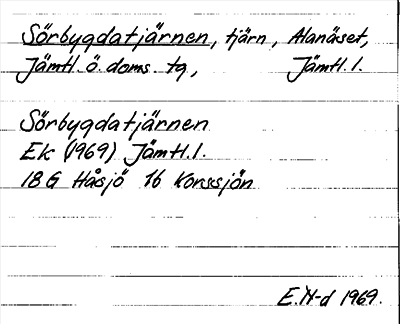 Sörbygdatjärnen, tjärn, Alanäset,
Jämtl. ö. doms. tg, Jämtl. l.
Sörbygdatjärnen
Ek (1969) Jämtl. l.
18 G Håsjö 16 Korssjön
E. N-d 1969.